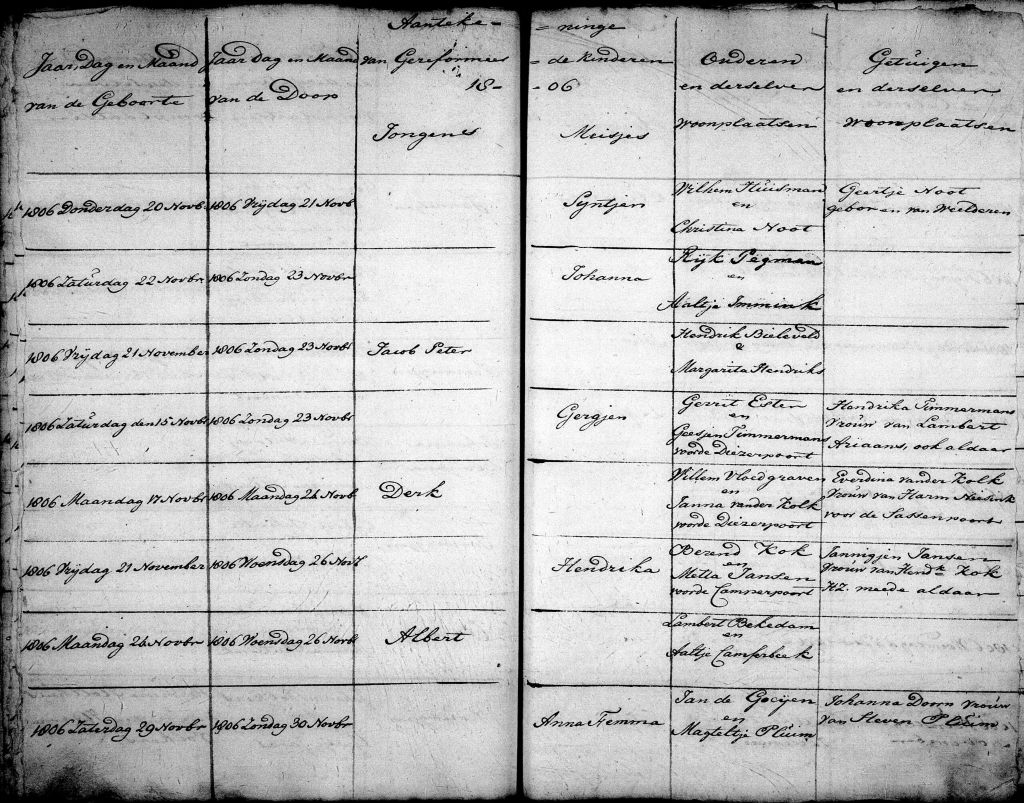 Aanteke= =ninge
Jaar, Dag en Maand Jaar Dag en Maand van Gereformee= =de Kinderen Ouderen Getuigen
van de Geboorte van de Doop 18= =06 en derselver en derselver
Jongens Meisjes woonplaatsen woonplaatsen
Wilhem Huisman Geertje Noot
1806 Donderdag 20 Novbr 1806 Vrijdag 21 Novb Syntjen en geboren van Weelderen
Christina Noot
Rijk Pegman
1806 Zaturdag 22 Novbr 1806 Zondag 23 Novbr Johanna en
Aaltje Immink
Hendrik Bieleveld
1806 Vrijdag 21 November 1806 Zondag 23 Novbr Jacob Peter &
Margarita Hendriks
Gerrit Ester Hendrika Timmermans
1806 Zaturdag den 15 Novbr 1806 Zondag 23 Novbr Gergjen en vrouw van Lambert
Geesjen Timmermans Ariaans, ook aldaar
voorde Diezerpoort
Willem Vloedgraven Everdina van der Kolk
1806 Maandag 17 Novbr 1806 Maandag 24 Novb Derk en vrouw van Harm
Janna van der Kolk voor de Sassenpoort
voorde Diezerpoort
Berend Kok Jannigjen Jansen
1806 Vrijdag 21 November 1806 Woensdag 26 Novb Hendrika en vrouw van Hendk Kok
Metta Jansen Hz. meede aldaar
voorde Camperpoort
Lambert Bekedam
1806 Maandag 24 Novbr 1806 Woensdag 26 Novbr Albert en
Aaltje Camferbeek
Jan de Goeijen Johanna Doorn vrouw
1806 Zaterdag 29 Novbr 1806 Zondag 30 Novbr Anna Femma en van Steven Pluim
Magteltje Pluim